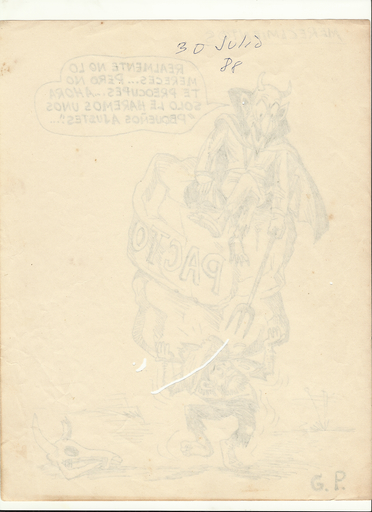 30 Julio
88
REALMENTE NO LO
MERECES...PERO NO
TE PREOCUPES...AHORA
SOLO LE HAREMOS UNOS
"PEQUEÑOS AJUSTES".
PACTO
G.P.